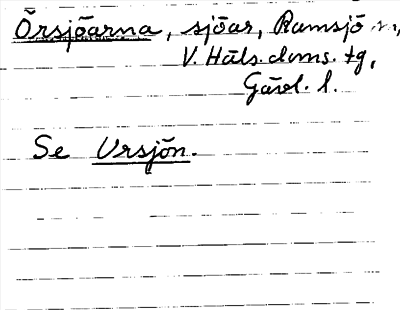 Örsjöarna, sjöar, Ramsjö sn,
V. Häls. doms. tg,
Gävl. l.
Se Ursjön.